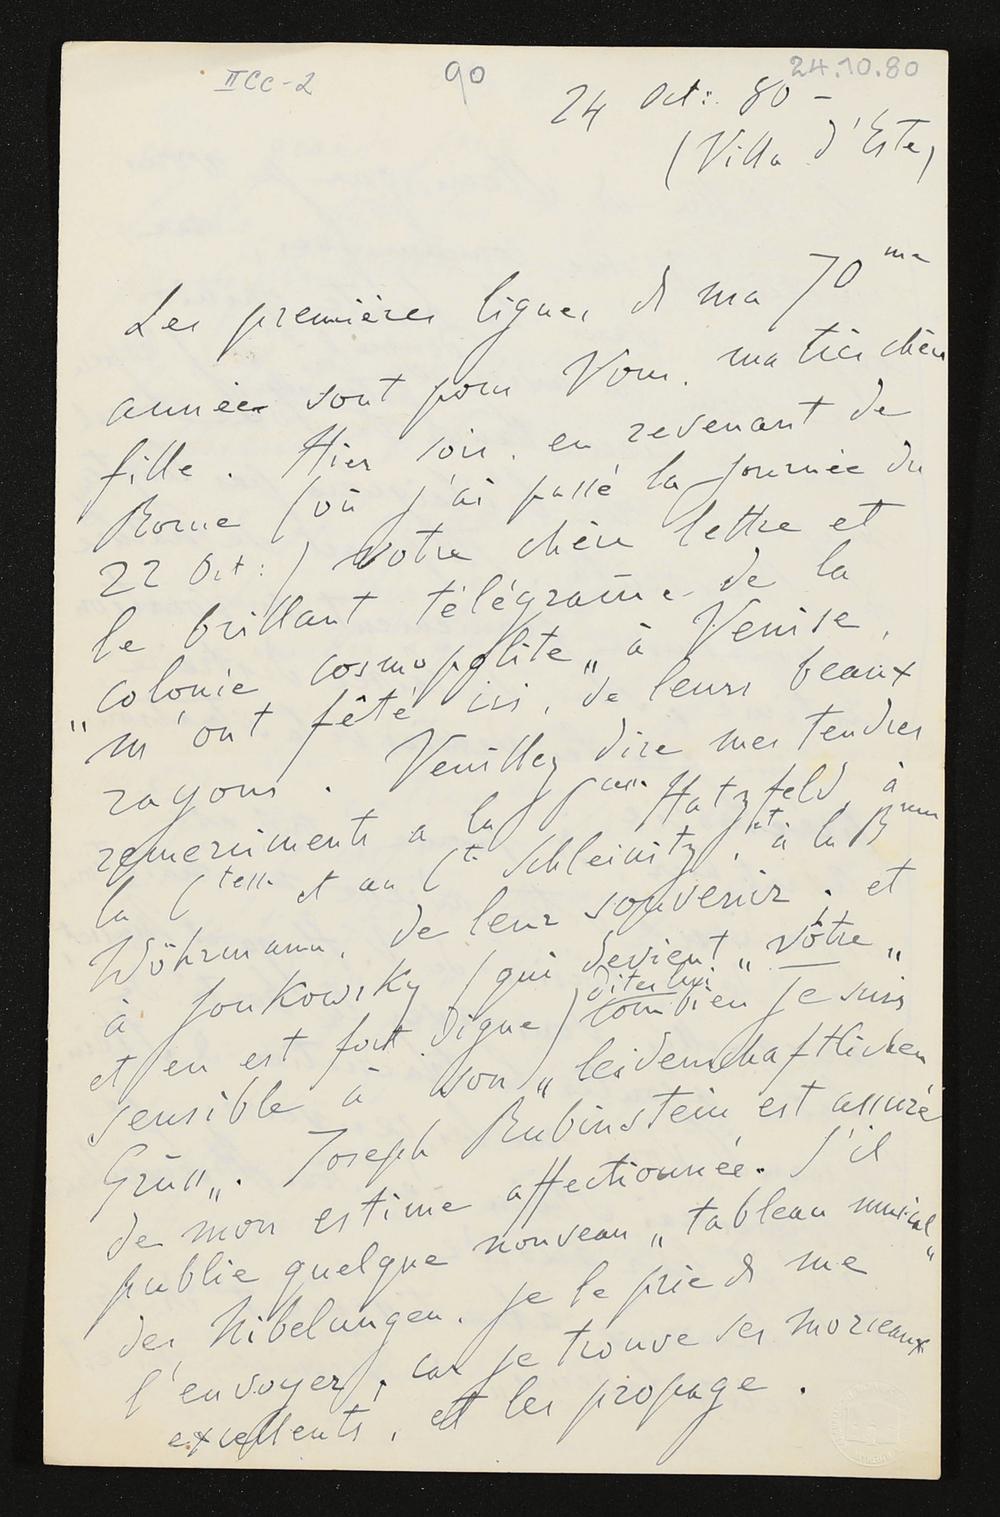 II Cc-2
90
24.10.80
24 Oct: 80 –
(Villa d'Este)
Les premières lignes de ma 70me
année sont pour Vous, ma très chère
fille. Hier soir, en revenant de
Rome (où j'ai passé la journée du
22 Oct:) votre chère lettre et
le brillant télégram̄e de la
„colonie cosmopolite„ à Venise,
m'ont fêté ici, de leurs beaux
rayons. Veuillez dire mes tendres
remerciments a la Pcesse Hatzfeld, à
la Ctesse et au Cte Schleinitz, et à la Bnne
Wöhrmann, de leur souvenir; et
à Joukowsky (qui devient „vôtre„
et en est fort digne) dites lui
combien je suis
sensible à son „leidenschaftlichen
Gruss„. Joseph Rubinstein est assuré
de mon estime affectionnée. S'il
publie quelque nouveau „tableau musical"
des Nibelungen, je le prie de me
l'envoyer; car je trouve ses morceaux
excellents, et les propage.